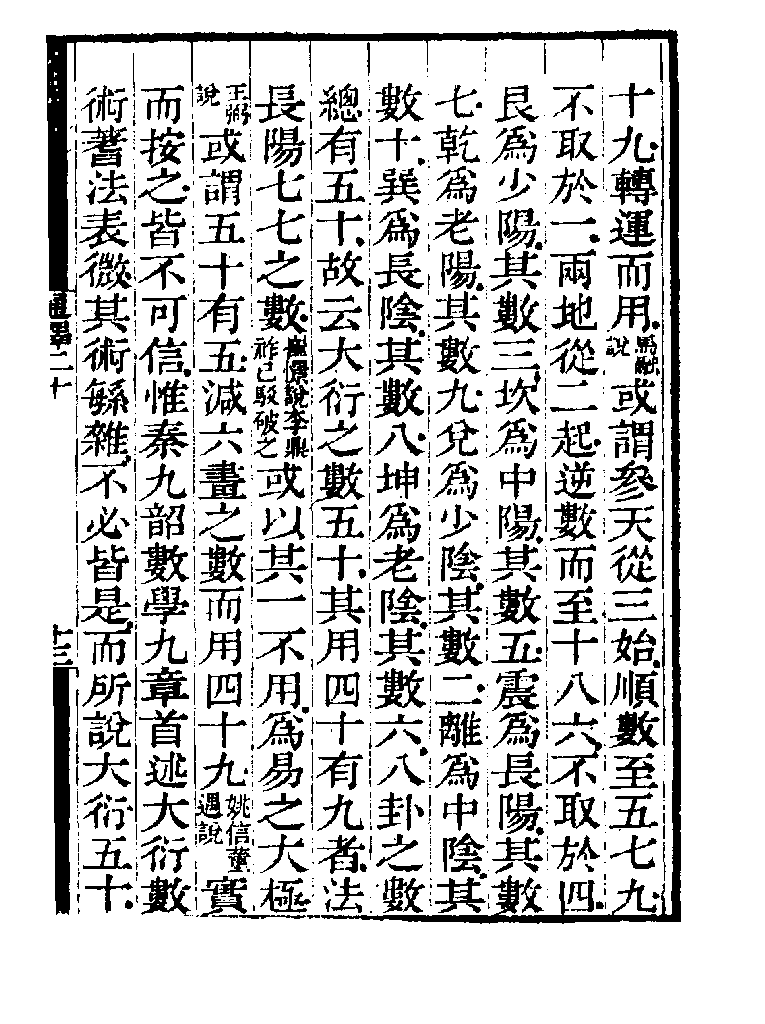 十九轉運而用馬融說或謂參天從三始順數至五七九
不取於一兩地從二起逆數而至十八六不取於四
艮爲少陽其數三坎爲中陽其數五震爲長陽其數
七乾爲老陽其數九兌爲少陰其數二離爲中陰其
數十巽爲長陰其數八坤爲老陰其數六八卦之數
總有五十故云大衍之數五十其用四十有九者法
長陽七七之數崔憬說李鼎祚已駁破之或以其一不用爲易之大極
王弼說或謂五十有五減六畫之數而用四十九姚信董遇說實
而按之皆不可信惟秦九韶數學九章首述大衍數
術蓍法表微其術緐雜不必皆是而所說大衍五十
通釋二十
十三